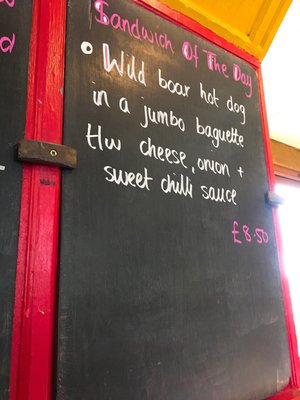 Sandwich Of The Day
• Wild boar hot dog
in a jumbo baguette
Hw cheese, onion +
sweet chilli sauce
£8.50
d